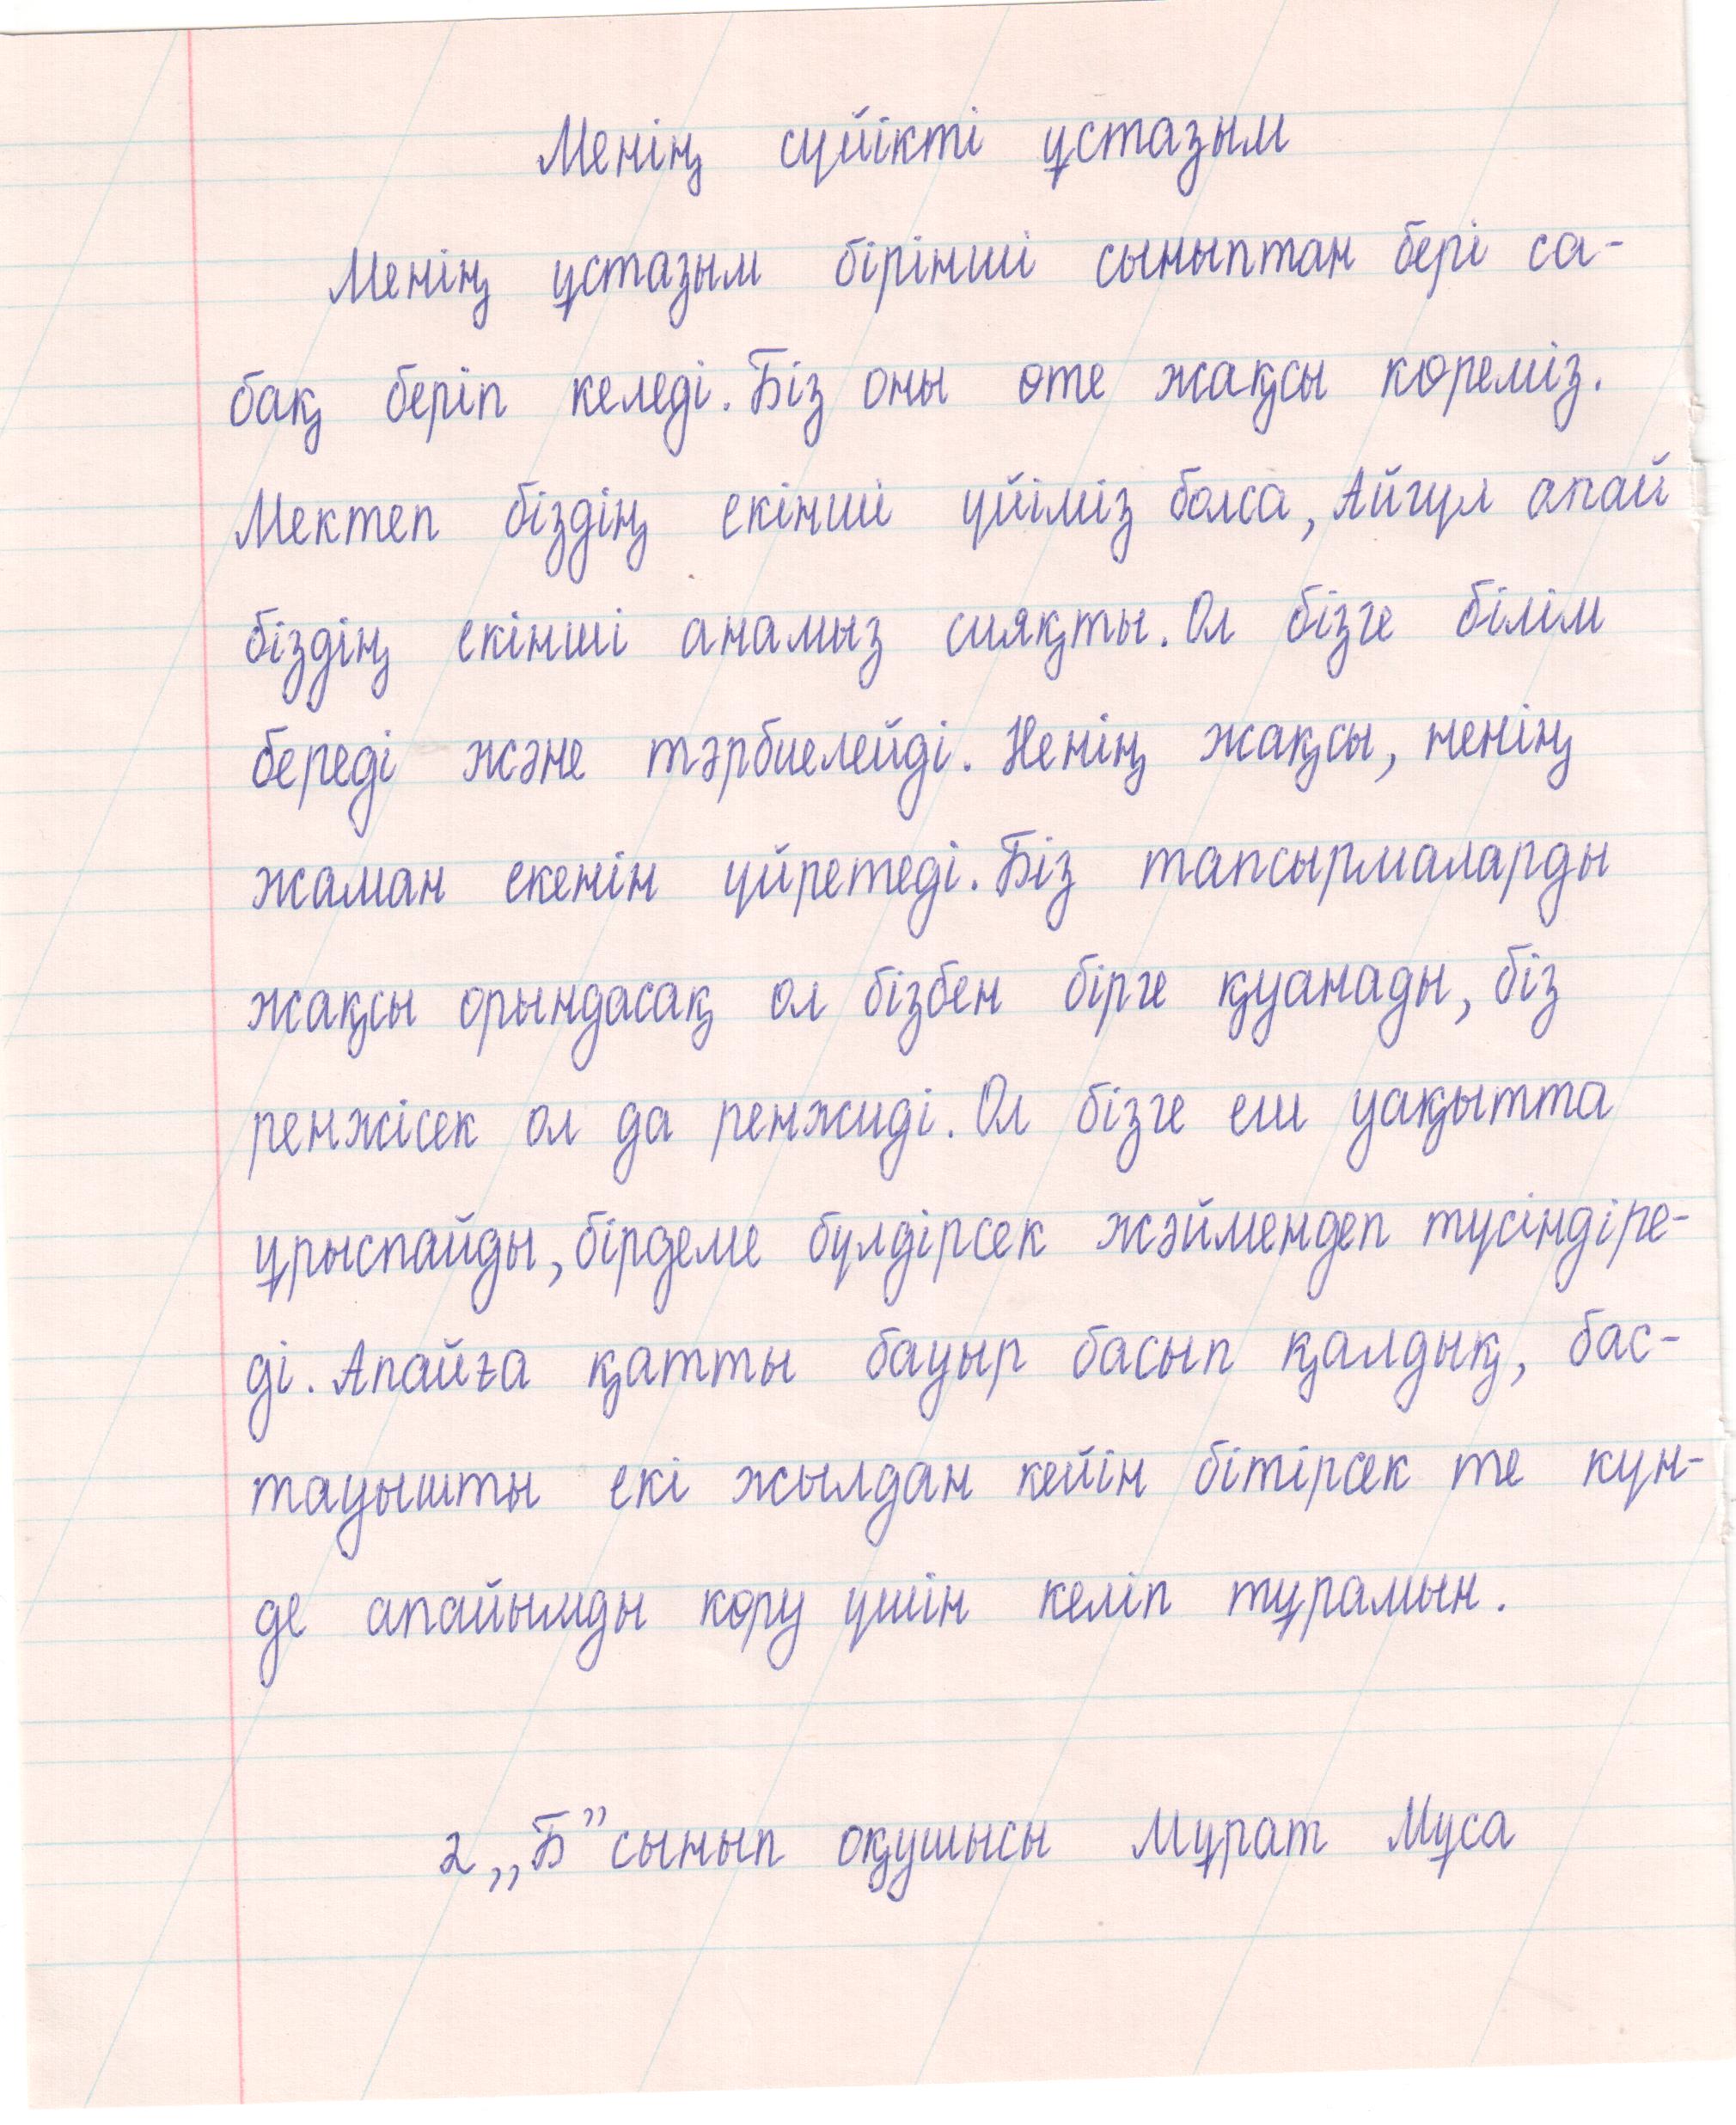 Менің сүйікті ұстазым
Менің ұстазым бірінші сыныптан бері са-
бақ беріп келеді. Біз оны өте жақсы көреміз.
Мектеп біздің екінші үйіміз болса, Айгүл апай
біздің екінші анамыз сияқты. Ол бізге білім
береді және тәрбиелейді. Ненің жақсы, ненің
жаман екенін үйретеді. Біз тапсырмаларды
жақсы орындасақ ол бізбен бірге қуанады, біз
ренжісек ол да ренжиді. Ол бізге еш уақытта
ұрыспайды, бірдеме бүлдірсек жәймендеп түсіндіре-
ді. Апайға қатты бауыр басып қалдық, бас-
тауышты екі жылдан кейін бітірсек те күн-
де апайымды көру үшін келіп тұрамын.
2 „Б” сынып оқушысы Мұрат Мұса